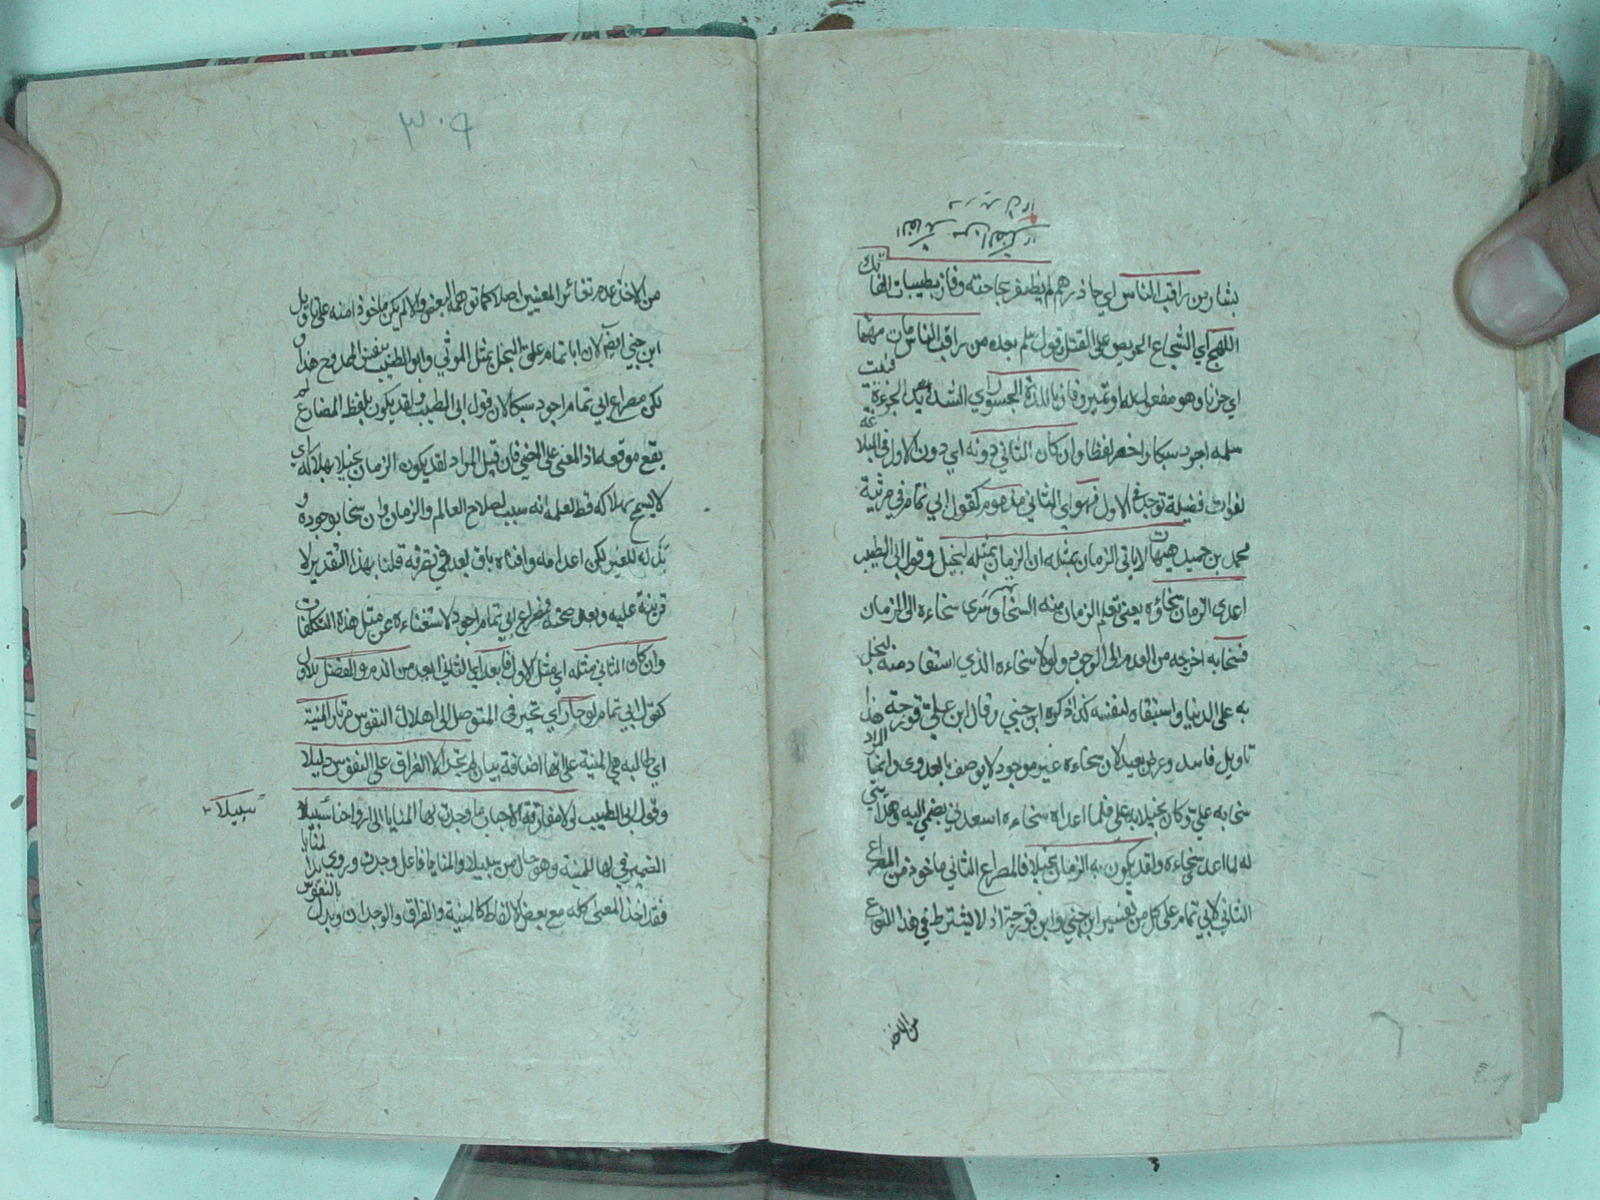 بشار من راقب الناس اي حاذرهم لم يظفر بحاجته وفاز بطيبات الفاتك
اللهج اي الشجاع الحريص على القتل وقول سلم بعده من راقب الناس مات هما
اي حزنا وهو مفعول له او تميز وفاز باللذة الجسور اي الشديد الجرءة فبيت
سلم اجود سبكا واخصر لفظا وان كان الثاني دونه اي دون الاول في البلاغة
لفوات فضيلة توجد في الاول فهو اي الثاني مذموم كقول ابي تمام في مرثية
محمد بن حميد هيهات لا ياتي الزمان بمثله ان الزمان بمثله لبخيل وقول ابي الطيب
اعدى الزمان سخاؤه يعني تعلم الزمان منه السخاء وسرى سخاءه الى الزمان
فسخا به اخرجه من العدم الى الوجود ولولا سخاءه الذي استفاد منه لبخل
به على الدنيا واستبقاه لنفسه كذا ذكره ابن جني وقال ابن فورجة هذا
تاويل فاسد وغرض بعيد لان سخاءه غير موجود لا يوصف بالعدوى وانما المراد
سخا به علي وكان بخيلا به علي فلما اعداه سخاءه اسعدني بضمي اليه وهدايتي
له لما اعدى سخاءه ولقد يكون به الزمان بخيلا فالمصراع الثاني ماخوذ من المصراع
الثاني لابي تمام على كل من تفسير ابن جني وابن فورجة اذ لا يشترط في هذا النوع
من الاخذ
٣٠٩
من الاخذ عدم تغائر المعنيين اصلا كما توهمه البعض والا لم يكن ماخوذا منه على تاويل
ابن جني ايضا لان ابا تمام علق البخل بمثل المرثي وابو الطيب بنفس الممدوح هذا و
لكن مصراع ابي تمام اجود سبكا لان قول ابي الطيب ولقد يكون بلفظ المضارع لم
يقع موقعه اذ المعنى على المضي فان قيل المراد لقد يكون الزمان بخيلا بهلاكه اي
لا يسمح بهلاكه قط لعلمه انه سبب لصلاح العالم والزمان وان سخا بوجوده و
بذله للغير لكن اعدامه وافناه باق بعد في تصرفه قلنا بهذا التقدير لا
قرينة عليه وبعد صحته فمصراع ابي تمام اجود لاستغناءه عن مثل هذه التكلفات
وان كان الثاني مثله اي مثل الاول فابعد اي الثاني ابعد من الذم والفضل للاول
كقول ابي تمام لو حار اي تحير في المتوصل الى اهلاك النفوس مرتاد المنية
اي طالبه هي المنية على انها اضافة بيان لم تجد الا الفراق على النفوس دليلا
وقول ابي الطيب لولا مفارقة الاحباب ما وجدت لها المنايا الى ارواحنا سبيلا
سبيلا
الضمير في لها للمنية وهو حال من سبيلا والمنايا فاعل وجدت وروي يد المنايا
فقد اخذ المعنى كله مع بعض الالفاظ كالمنية والفراق والوجدان وبدل بالنفوس